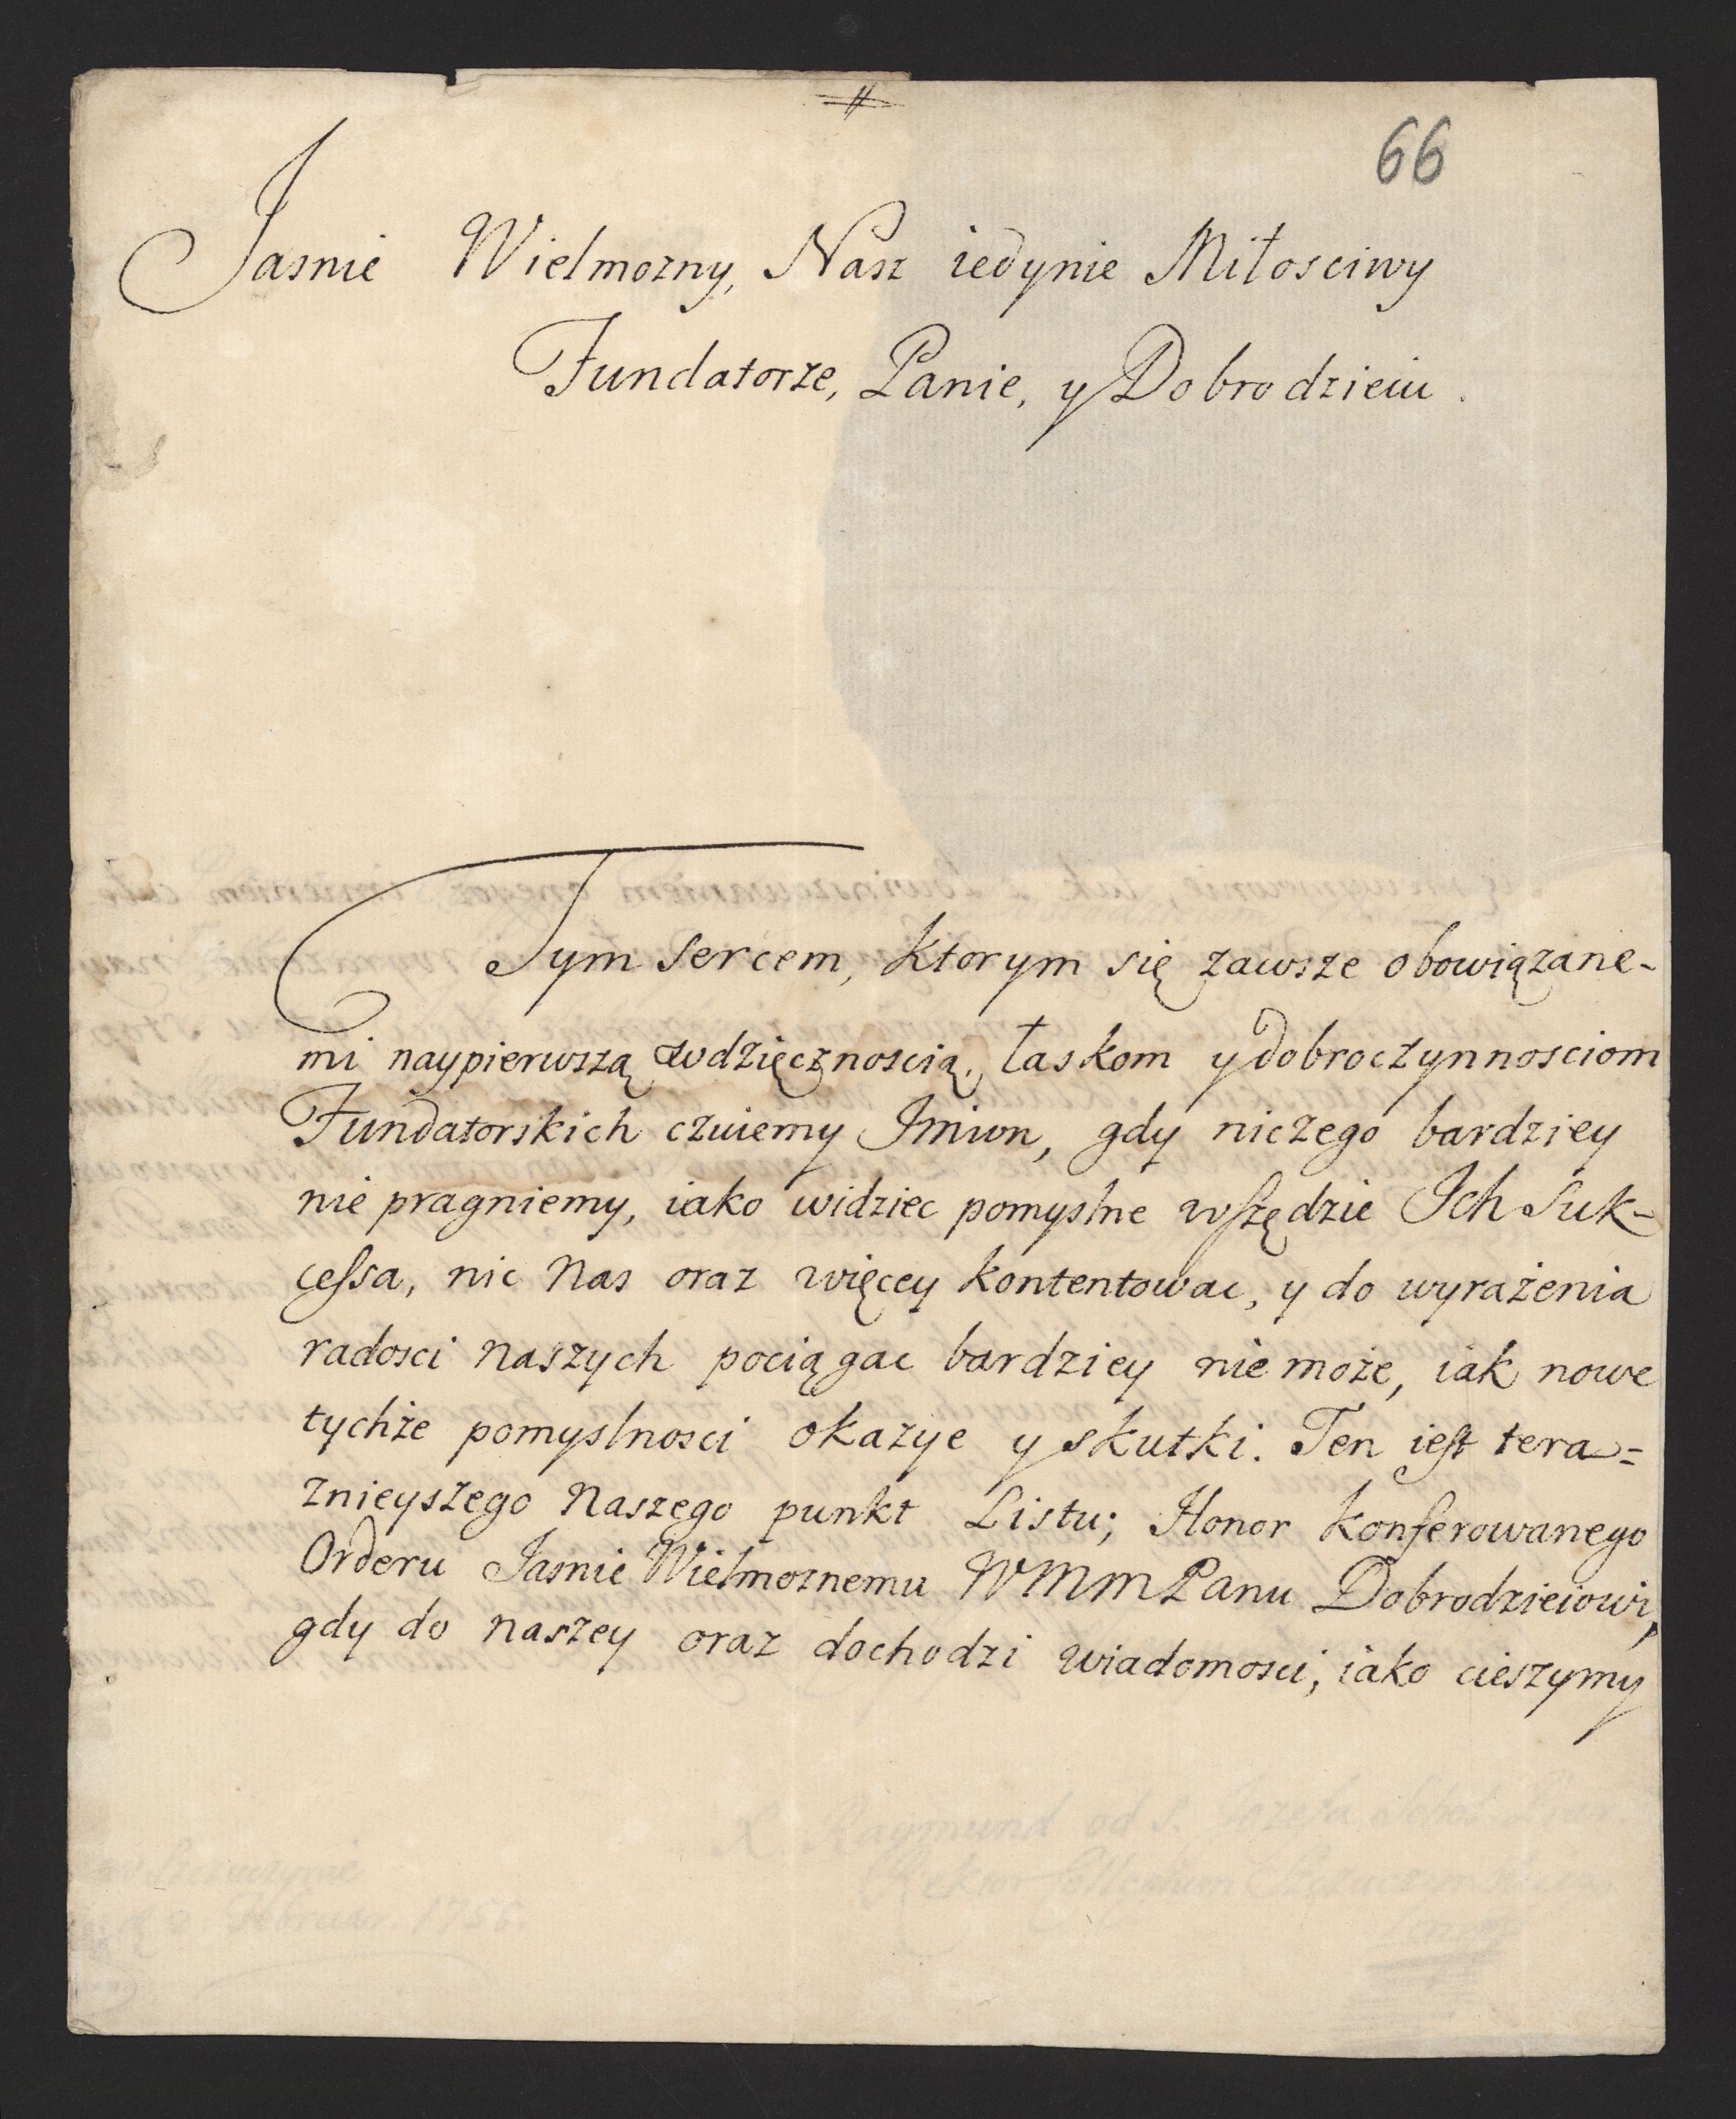 66
Jasnie Wielmozny, Nasz iedynie Miłosciwy
Fundatorze, Panie, y Dobrodzieiu.
Tym Sercem, ktorym się zawsze obowiązane-
mi naypierwszą wdzięcznoscią, łaskom y dobroczynnosciom
Fundatorskich czuiemy Imion, gdy niczego bardziey
nie pragniemy, iako widziec pomyslne wszędzie Ich Suk-
cessa, nic Nas oraz więcey kontentowac, y do wyrażenia
radosci Naszych pociągac bardziey nie może, iak nowe
tychże pomyslnosci okazye y skutki. Ten iest tera=
znieyszego Naszego punkt Listu; Honor konferowanego
Orderu Jasnie Wielmoznemu WMM Panu Dobrodzieiowi,
gdy do naszey oraz dochodzi wiadomosci, iako cieszymy
R. Raymund od S. Jozefa
Rektor Collegium
2. Februar. 1756.